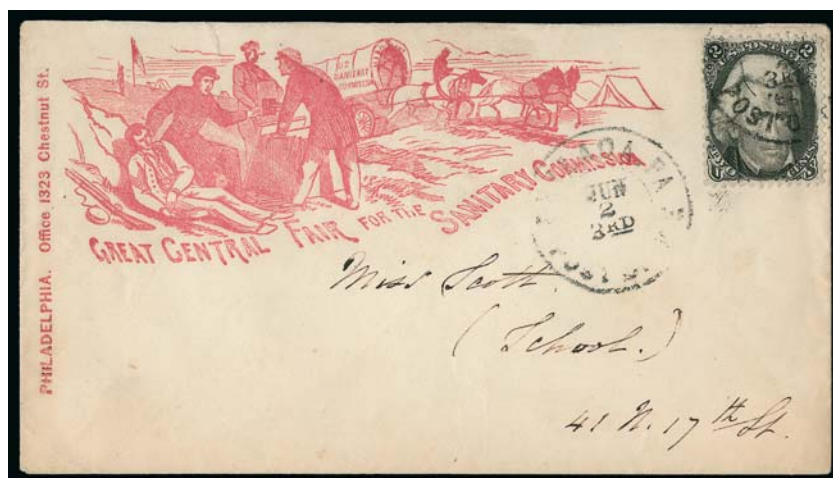 PHILADELPHIA. Office 1323 Chestnut St.
U.S.
SANITARY
COMMISSION
GREAT CENTRAL FAIR FOR THE SANITARY COMMISSION
JUN
2
3RD
2 U.S. POSTAGE 2
Miss Scott.
(School.)
41 N. 17th St.